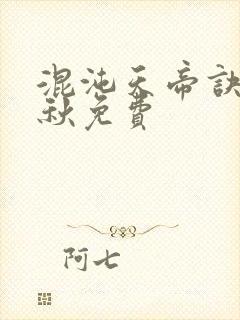 混沌天帝訣
秋免費
阿七